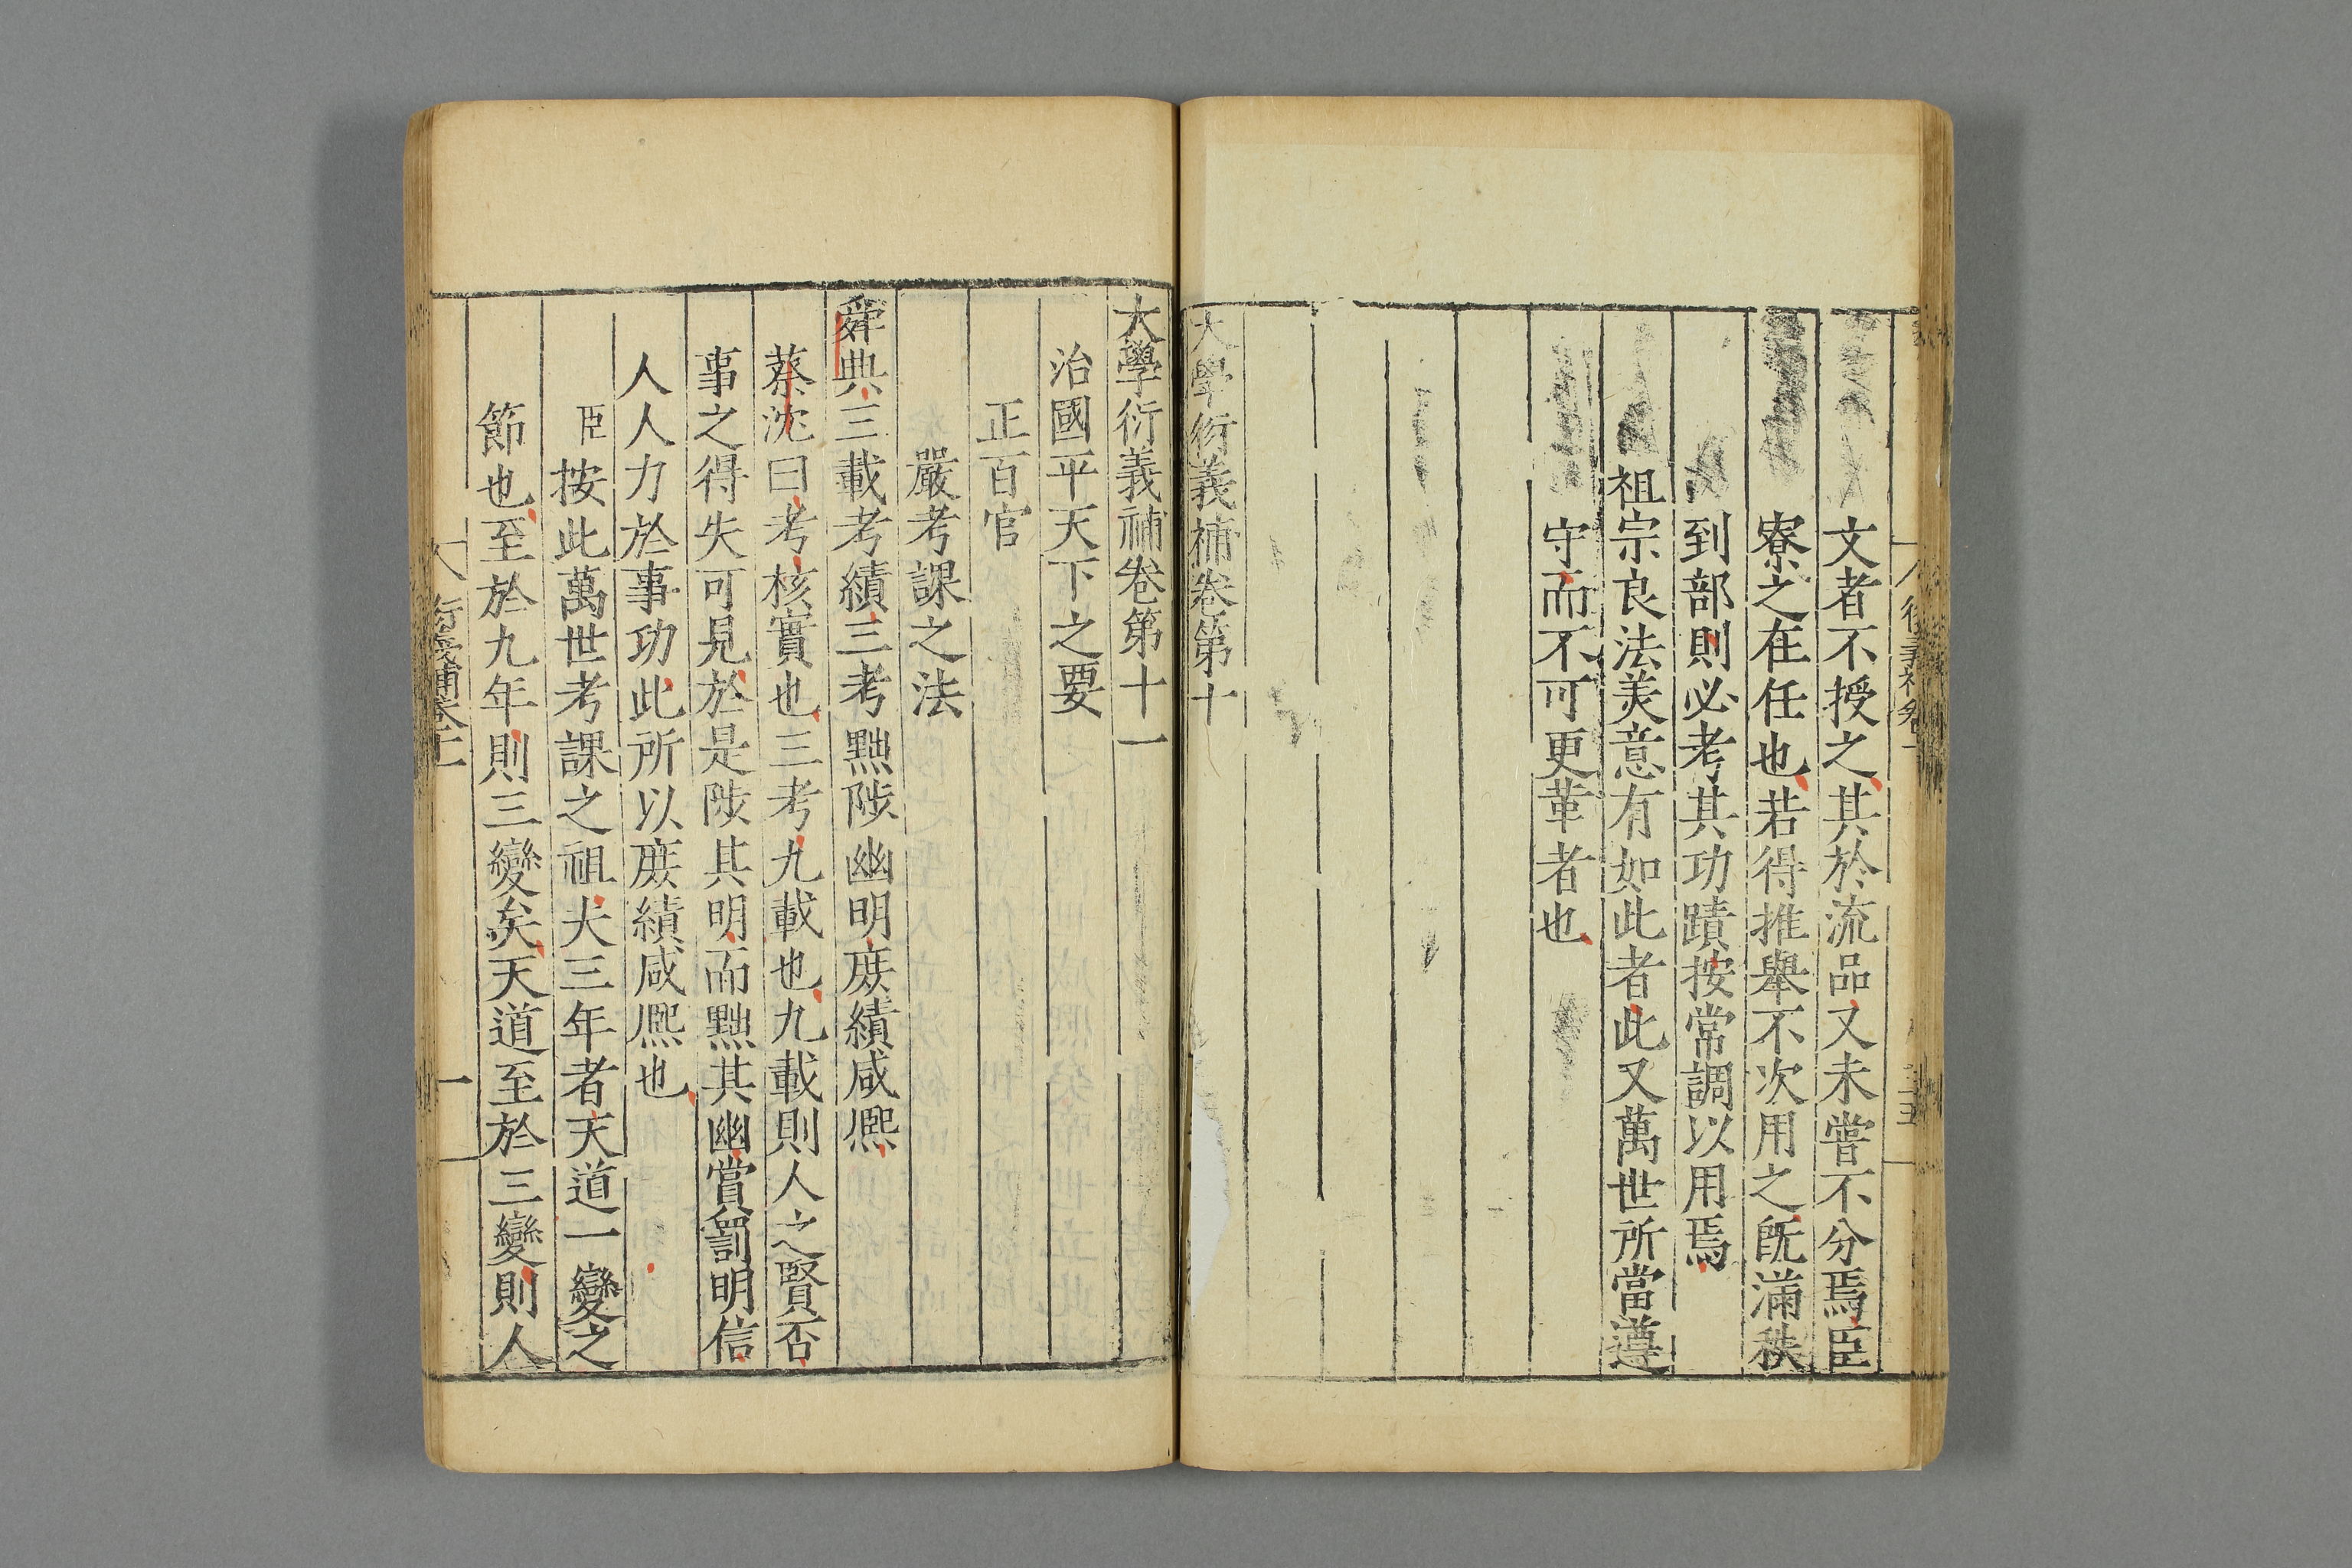 文者不授之其於流品又未嘗不分焉臣
寮之在任也若得推舉不次用之旣滿秩
到部則必考其功蹟按常調以用焉
祖宗良法美意有如此者此又萬世所當遵
守而不可更革者也
大學衍義補卷第十
大學衍義補卷第十一
治國平天下之要
正百官
嚴考課之法
舜典三載考績三考黜陟幽明庶績咸熙
蔡沈曰考核實也三考九載也九載則人之賢否
事之得失可見於是陟其明而黜其幽賞罰明信
人人力於事功此所以庶績咸熙也
臣按此萬世考課之祖夫三年者天道一變之
節也至於九年則三變矣天道至於三變則人
衍義補卷十一
一